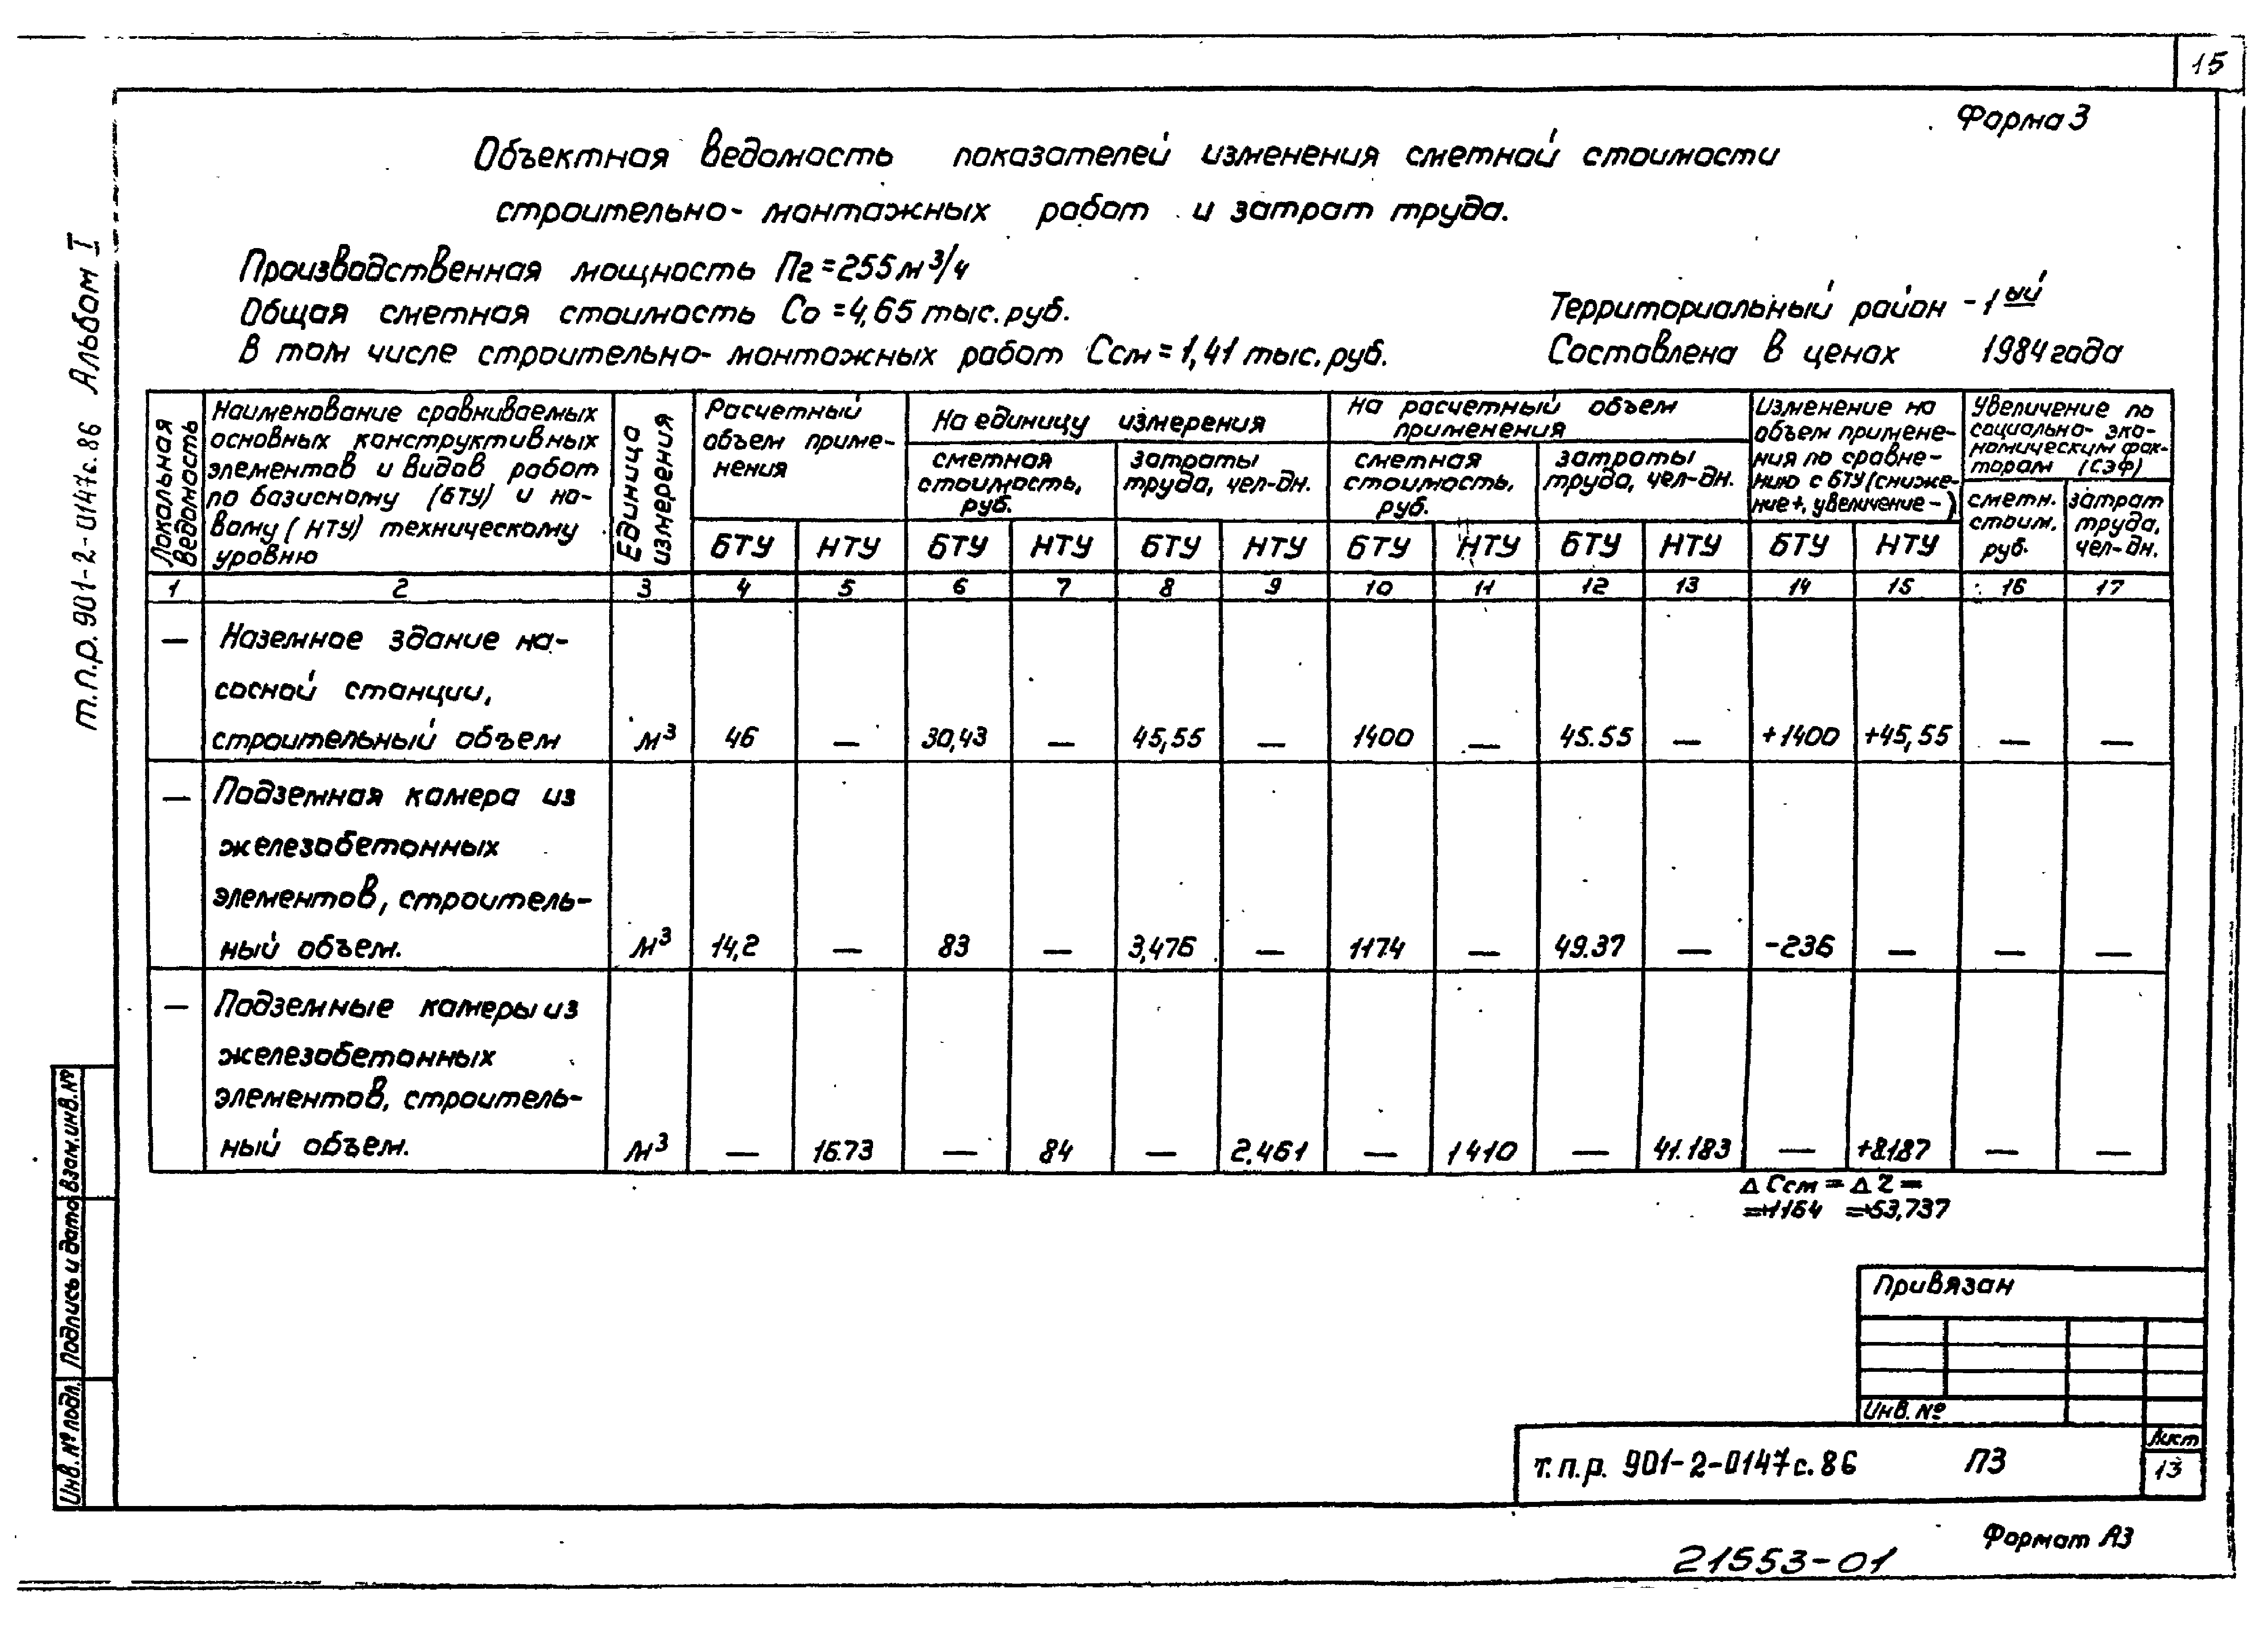 15
Форма 3
Объектная ведомость показателей изменения сметной стоимости
строительно-монтажных работ и затрат труда.
Производственная мощность Пг=255м³/ч
Общая сметная стоимость Со=4,65 тыс.руб.
В том числе строительно-монтажных работ Ссм=1,41 тыс.руб.
Территориальный район -1ый
Составлена в ценах 1984 года
т.п.р. 901-2-0147с.86 Альбом I
Локальная ведомость
Наименование сравниваемых
основных конструктивных
элементов и видов работ
по базисному (БТУ) и но-
вому (НТУ) техническому
уровню
Единица измерения
Расчетный
объем приме-
нения
На единицу измерения
сметная
стоимость,
руб.
затраты
труда, чел-дн.
На расчетный объем
применения
сметная
стоимость,
руб.
затраты
труда, чел-дн.
Изменение на
объем примене-
ния по сравне-
нию с БТУ(сниже-
ние+, увеличение-)
Увеличение по
социально- эко-
номическим фак-
торам (СЭФ)
сметн.
стоим.
руб.
затрат
труда,
чел-дн.
БТУ НТУ БТУ НТУ БТУ НТУ БТУ НТУ БТУ НТУ БТУ НТУ
1 2 3 4 5 6 7 8 9 10 11 12 13 14 15 16 17
— Наземное здание на-
сосной станции,
строительный объем м³ 46 — 30,43 — 45,55 — 1400 — 45.55 — +1400 +45,55 — —
— Подземная камера из
железобетонных
элементов, строитель-
ный объем. м³ 14,2 — 83 — 3,476 — 1174 — 49.37 — -236 — — —
— Подземные камеры из
железобетонных
элементов, строитель-
ный объем. м³ — 16.73 — 84 — 2.461 — 1410 — 41.183 — +8.187 — —
Δ Ссм = Δ Z =
=+1164 =+53,737
Привязан
Инв. №
т.п.р. 901-2-0147с.86 ПЗ
Лист
13
Взам.инв.№
Подпись и дата
Инв.№ подл.
Формат А3
21553-01